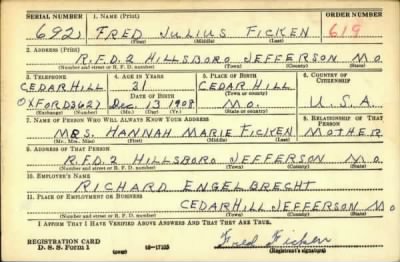 SERIAL NUMBER 1. NAME (Print) ORDER NUMBER
692 FRED JULIUS FICKEN 619
(First) (Middle) (Last)
2. ADDRESS (Print)
R.F.D.2 HILLSBORO JEFFERSON MO.
(Number and street or R. F. D. number) (Town) (County) (State)
3. TELEPHONE 4. AGE IN YEARS 5. PLACE OF BIRTH 6. COUNTRY OF CITIZENSHIP
CEDARHILL 31 CEDAR HILL
DATE OF BIRTH (Town or county)
OXFORD3627 Dec. 13 1908 MO. U.S.A.
(Exchange) (Number) (Mo.) (Day) (Yr.) (State or country)
7. NAME OF PERSON WHO WILL ALWAYS KNOW YOUR ADDRESS 8. RELATIONSHIP OF THAT PERSON
MRS. HANNAH MARIE FICKEN MOTHER
(Mr., Mrs., Miss) (First) (Middle) (Last)
9. ADDRESS OF THAT PERSON
R.F.D.2 HILLSBORO JEFFERSON MO.
(Number and street or R. F. D. number) (Town) (County) (State)
10. EMPLOYER'S NAME
RICHARD ENGELBRECHT
11. PLACE OF EMPLOYMENT OR BUSINESS
CEDARHILL JEFFERSON MO
(Number and street or R. F. D. number) (Town) (County) (State)
I AFFIRM THAT I HAVE VERIFIED ABOVE ANSWERS AND THAT THEY ARE TRUE.
REGISTRATION CARD Fred Ficken
D. S. S. Form 1 (over) 16-17105 (Registrant's signature)